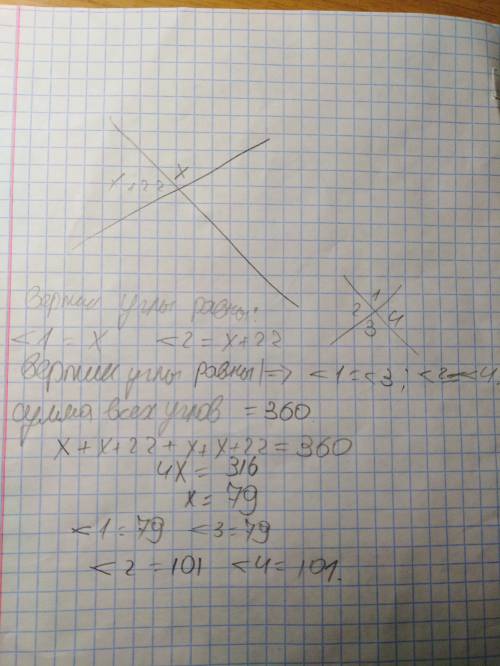 x
x+22
Вертик углы равны:
1
2
4
3
<1 = x <2 = x+22
Вертик углы равны |=> <1=<3; <2=<4.
сумма всех углов = 360
x + x+22 + x + x+22 = 360
4x = 316
x = 79
<1 = 79 <3 = 79
<2 = 101 <4 = 101.